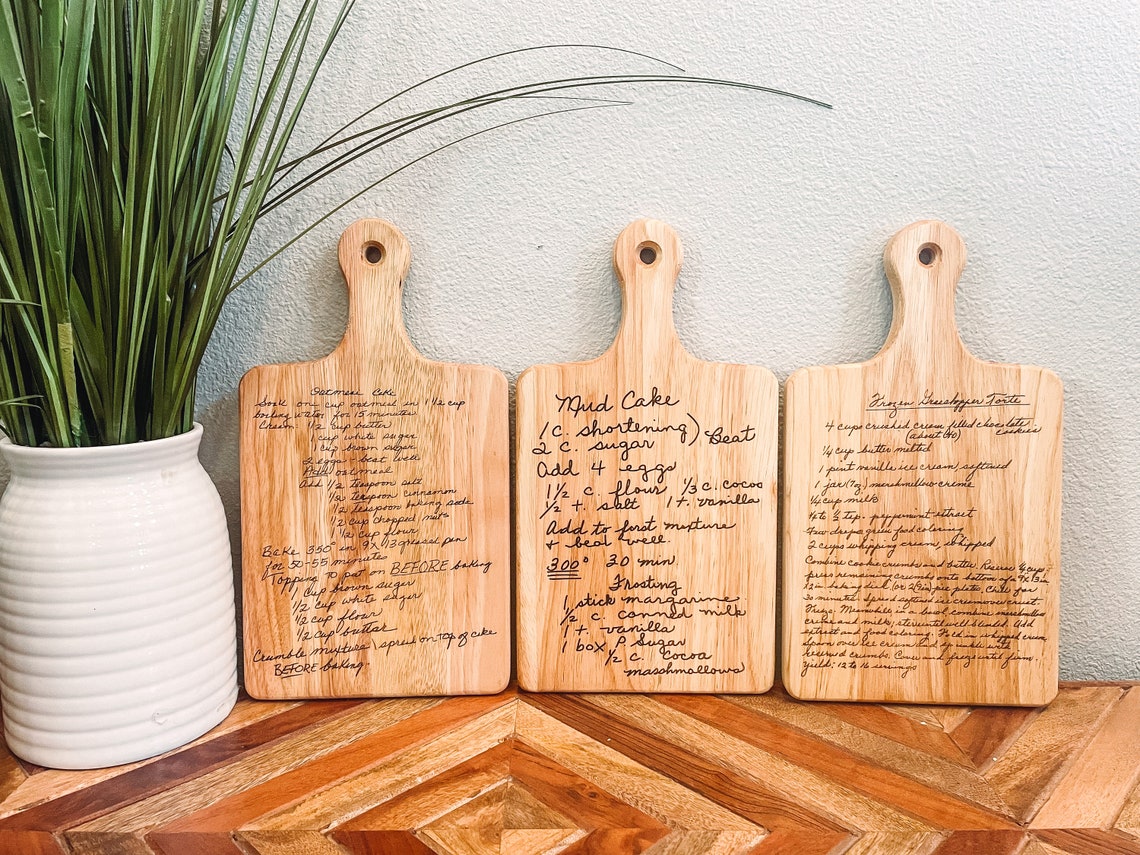 Oatmeal Cake
Soak one cup oatmeal in 1 1/2 cup
boiling water for 15 minutes
Cream: 1/2 cup butter
1 cup white sugar
1 cup brown sugar
2 eggs - beat well
Add oatmeal
Add 1/2 teaspoon salt
1/2 teaspoon cinnamon
1/2 teaspoon baking soda
1/2 cup chopped nuts
1/2 cup flour
Bake 350° in 9 x 13 greased pan
for 50-55 minutes
Topping to put on BEFORE baking
1 cup brown sugar
1/2 cup white sugar
1/2 cup flour
1/2 cup butter
Crumble mixture, spread on top of cake
BEFORE baking.
Mud Cake
1 c. shortening) Beat
2 c. sugar
Add 4 eggs
1 1/2 c. flour 1/3 c. cocoa
1/2 t. salt 1 t. vanilla
Add to first mixture
+ beat well.
300° 30 min.
Frosting
1 stick margarine
1/2 c. canned milk
1 t. vanilla
1 box P. Sugar
1/2 c. cocoa
masshmallows
Frozen Grasshopper Torte
4 cups crushed cream filled chocolate
(about 40) cookies
1/4 cup butter melted
1 pint vanilla ice cream, softened
1 jar (7oz.) marshmallow creme
1/4 cup milk
1/4 to 1/2 tsp. peppermint extract
Few drops green food coloring
2 cups whipping cream, whipped
Combine cookie crumbs and butter. Reserve 1/4 cup;
press remaining crumbs onto bottom of a 9x13 in
in baking dish (or 2 9 in pie plates. Chill for
30 minutes. Spread softened ice cream over crust.
Freeze. Meanwhile in a bowl, combine marshmallow
creme and milk; stir until well blended. Add
extract and food coloring. Fold in whipped cream,
Spoon over ice cream and sprinkle with
reserved crumbs. Cover and freeze until firm.
yield: 12 to 16 servings